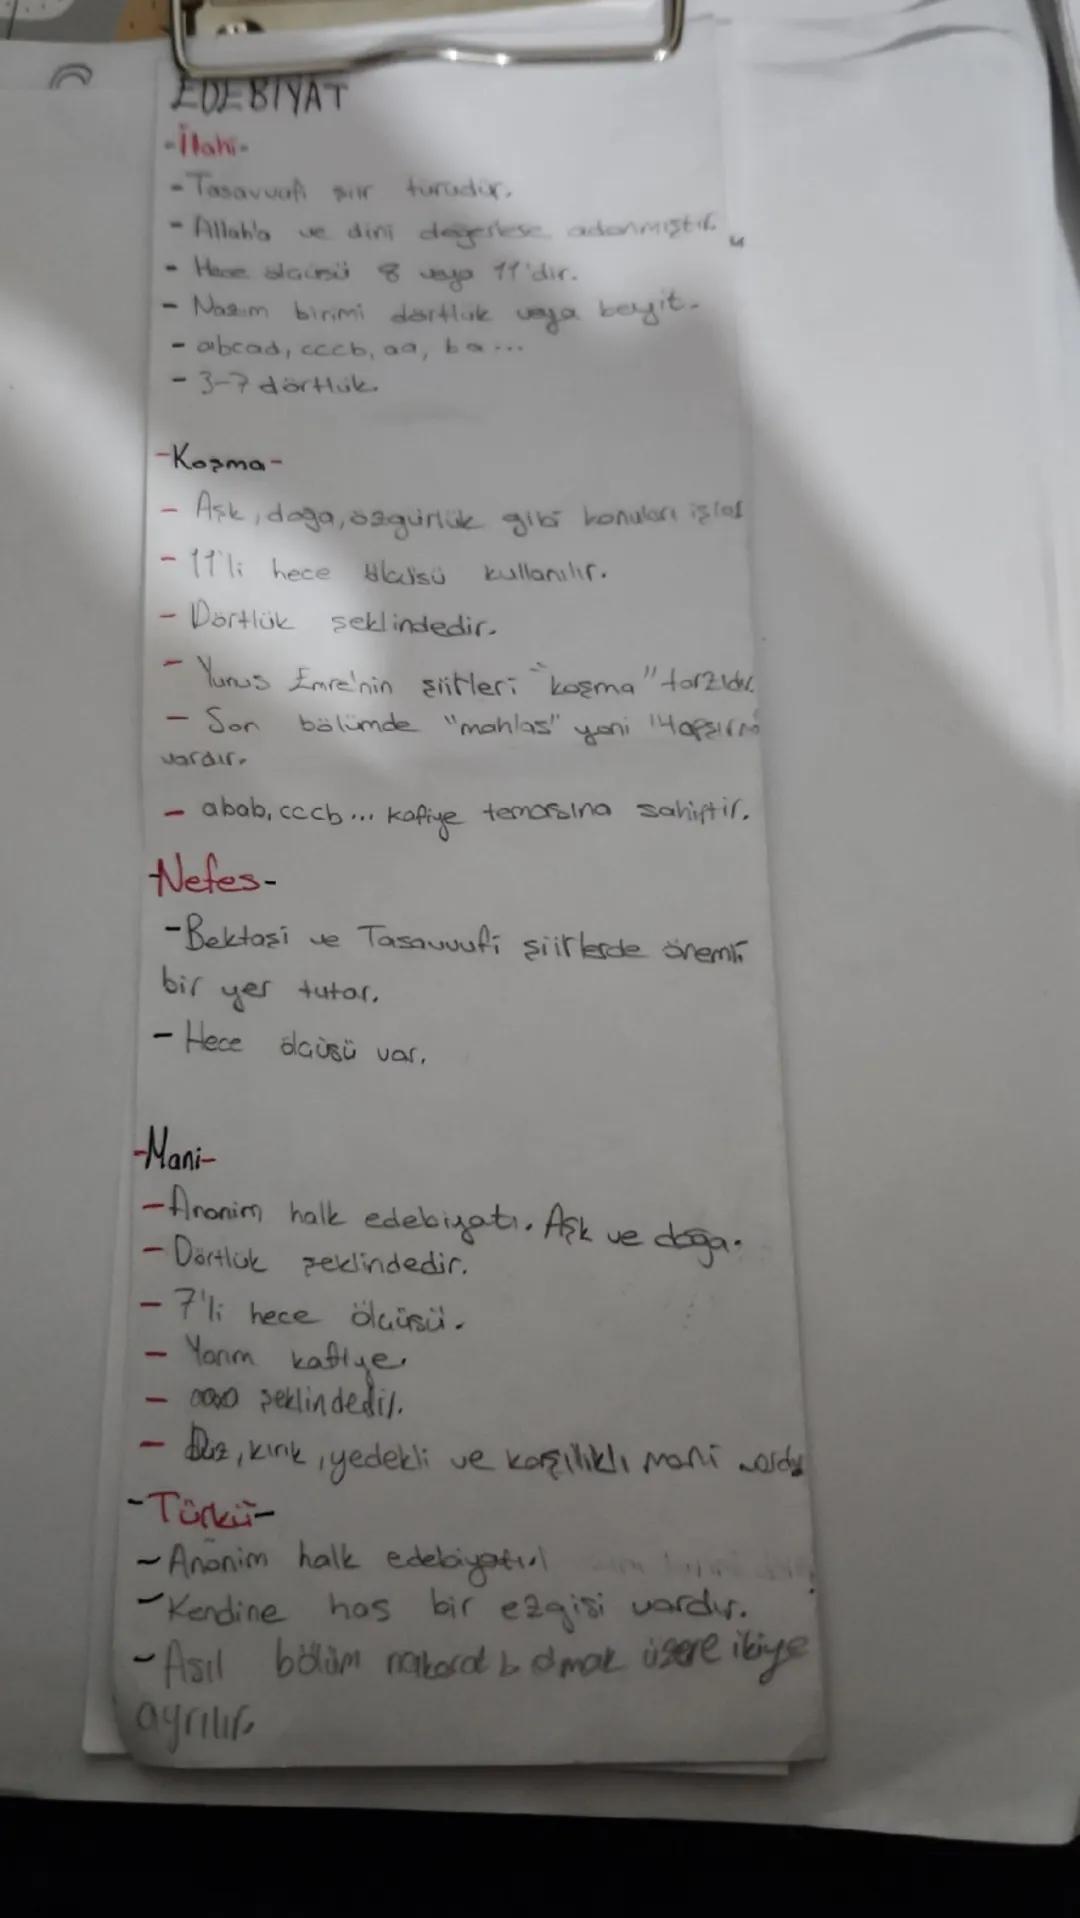 EDEBİYAT
-İlahi-
- Tasavvufi şiir türüdür.
- Allah'a ve dini değerlere adanmıştır.
- Hece ölçüsü 8 veya 11'dir.
- Nazım birimi dörtlük veya beyit.
- abcad, cccb, aa, ba...
- 3-7 dörtlük.
-Koşma-
- Aşk, doğa, özgürlük gibi konuları işler
- 11'li hece ölçüsü kullanılır.
- Dörtlük şeklindedir.
- Yunus Emre'nin şiirleri "koşma" tarzıdır.
- Son bölümde "mahlas" yani
vardır.
- abab, cccb... kafiye temasına sahiptir.
-Nefes-
-Bektaşi ve Tasavvufi şiirlerde önemli
bir yer tutar.
- Hece ölçüsü var.
-Mani-
- Anonim halk edebiyatı. Aşk ve doğa.
- Dörtlük şeklindedir.
- 7'li hece ölçüsü.
- Yarım kafiye.
- şeklindedir.
- Düz, kırık, yedekli ve karşılıklı mani vardır
-Türkü-
- Anonim halk edebiyatı
- Kendine has bir ezgisi vardır.
- Asıl bölüm nakarat b. olmak üzere ikiye
ayrılır.